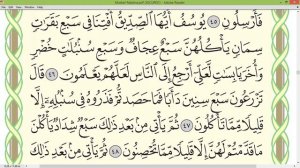 فَأَرْسِلُونِ ٤٥ يُوسُفُ أَيُّهَا ٱلصِّدِّيقُ أَفْتِنَا فِى سَبْعِ بَقَرَٰتٍ
سِمَانٍ يَأْكُلُهُنَّ سَبْعٌ عِجَافٌ وَسَبْعِ سُنۢبُلَٰتٍ خُضْرٍ
وَأُخَرَ يَابِسَٰتٍ لَّعَلِّىٓ أَرْجِعُ إِلَى ٱلنَّاسِ لَعَلَّهُمْ يَعْلَمُونَ ٤٦ قَالَ
تَزْرَعُونَ سَبْعَ سِنِينَ دَأَبًا فَمَا حَصَدتُّمْ فَذَرُوهُ فِى سُنۢبُلِهِۦٓ إِلَّا
قَلِيلًا مِّمَّا تَأْكُلُونَ ٤٧ ثُمَّ يَأْتِى مِنۢ بَعْدِ ذَٰلِكَ سَبْعٌ شِدَادٌ يَأْكُلْنَ
مَا قَدَّمْتُمْ لَهُنَّ إِلَّا قَلِيلًا مِّمَّا تُحْصِنُونَ ٤٨ ثُمَّ يَأْتِى مِنۢ بَعْدِ ذَٰلِكَ